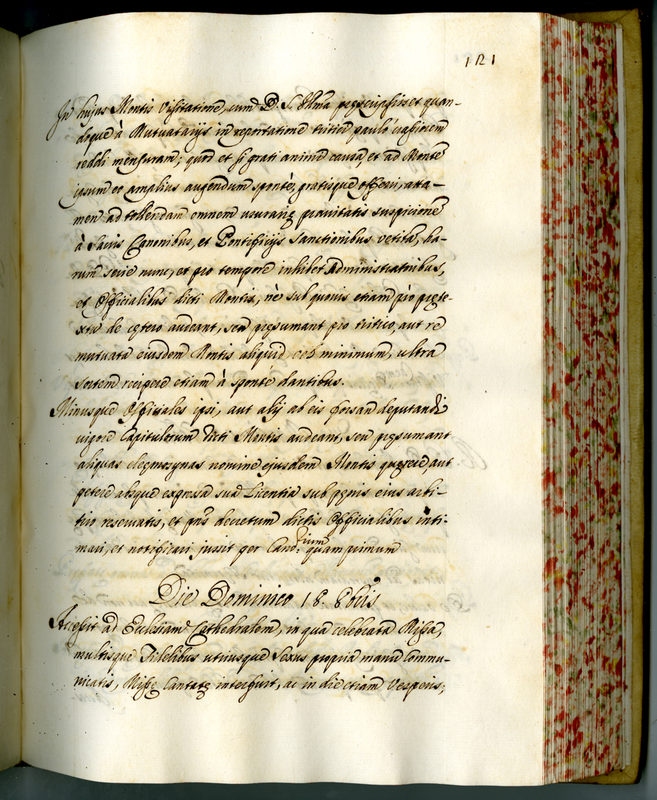 121
In hujus Montis Visitatione, cum D. S. Ill͞ma perceperit quan-
doque à Mutuatarijs in reportatione tritici paulò
reddi mensuram; quod et si grati animi causa, et ad Monte͂
ipsum eo amplius augendum spontè, gratisque offerri, atta-
men ad tollendam omnem usurarię pravitatis suspicione͂
à Sacris Canonibus, et Pontificijs Sanctionibus vetitæ, ha-
rum serie nunc, et pro tempore inhibet Administratoribus,
et Officialibus dicti Montis, nè sub quovis etiam pio pręte-
xtu de cętero audeant, seu pręsumant pro tritico, aut re
mutuata eiusdem Montis aliquid, vel minimum, ultra
Sortem recipere etiam à sponte dantibus.
Minusque Officiales ipsi, aut alij ab eis forsan deputandi
vigore Capitulorum dicti Montis audeant, seu pręsumant
aliquas eleemosynas nomine ejusdem Montis quęrere aut
petere absque expressa sua Licentia sub pęnis eius arbi-
trio reservatis, et p͞ns decretum dictis Officialibus inti-
mari, et notificari jussit per Canc.rium quamprimum
Die Dominico 18. 8bris
Accessit ad Ecclesiam Cathedralem, in qua celebrata Missa,
multisque Fidelibus utriusque Sexus propria manu Commu-
nicatis, Missę Cantatę interfuit, ac in die etiam Vesperis;